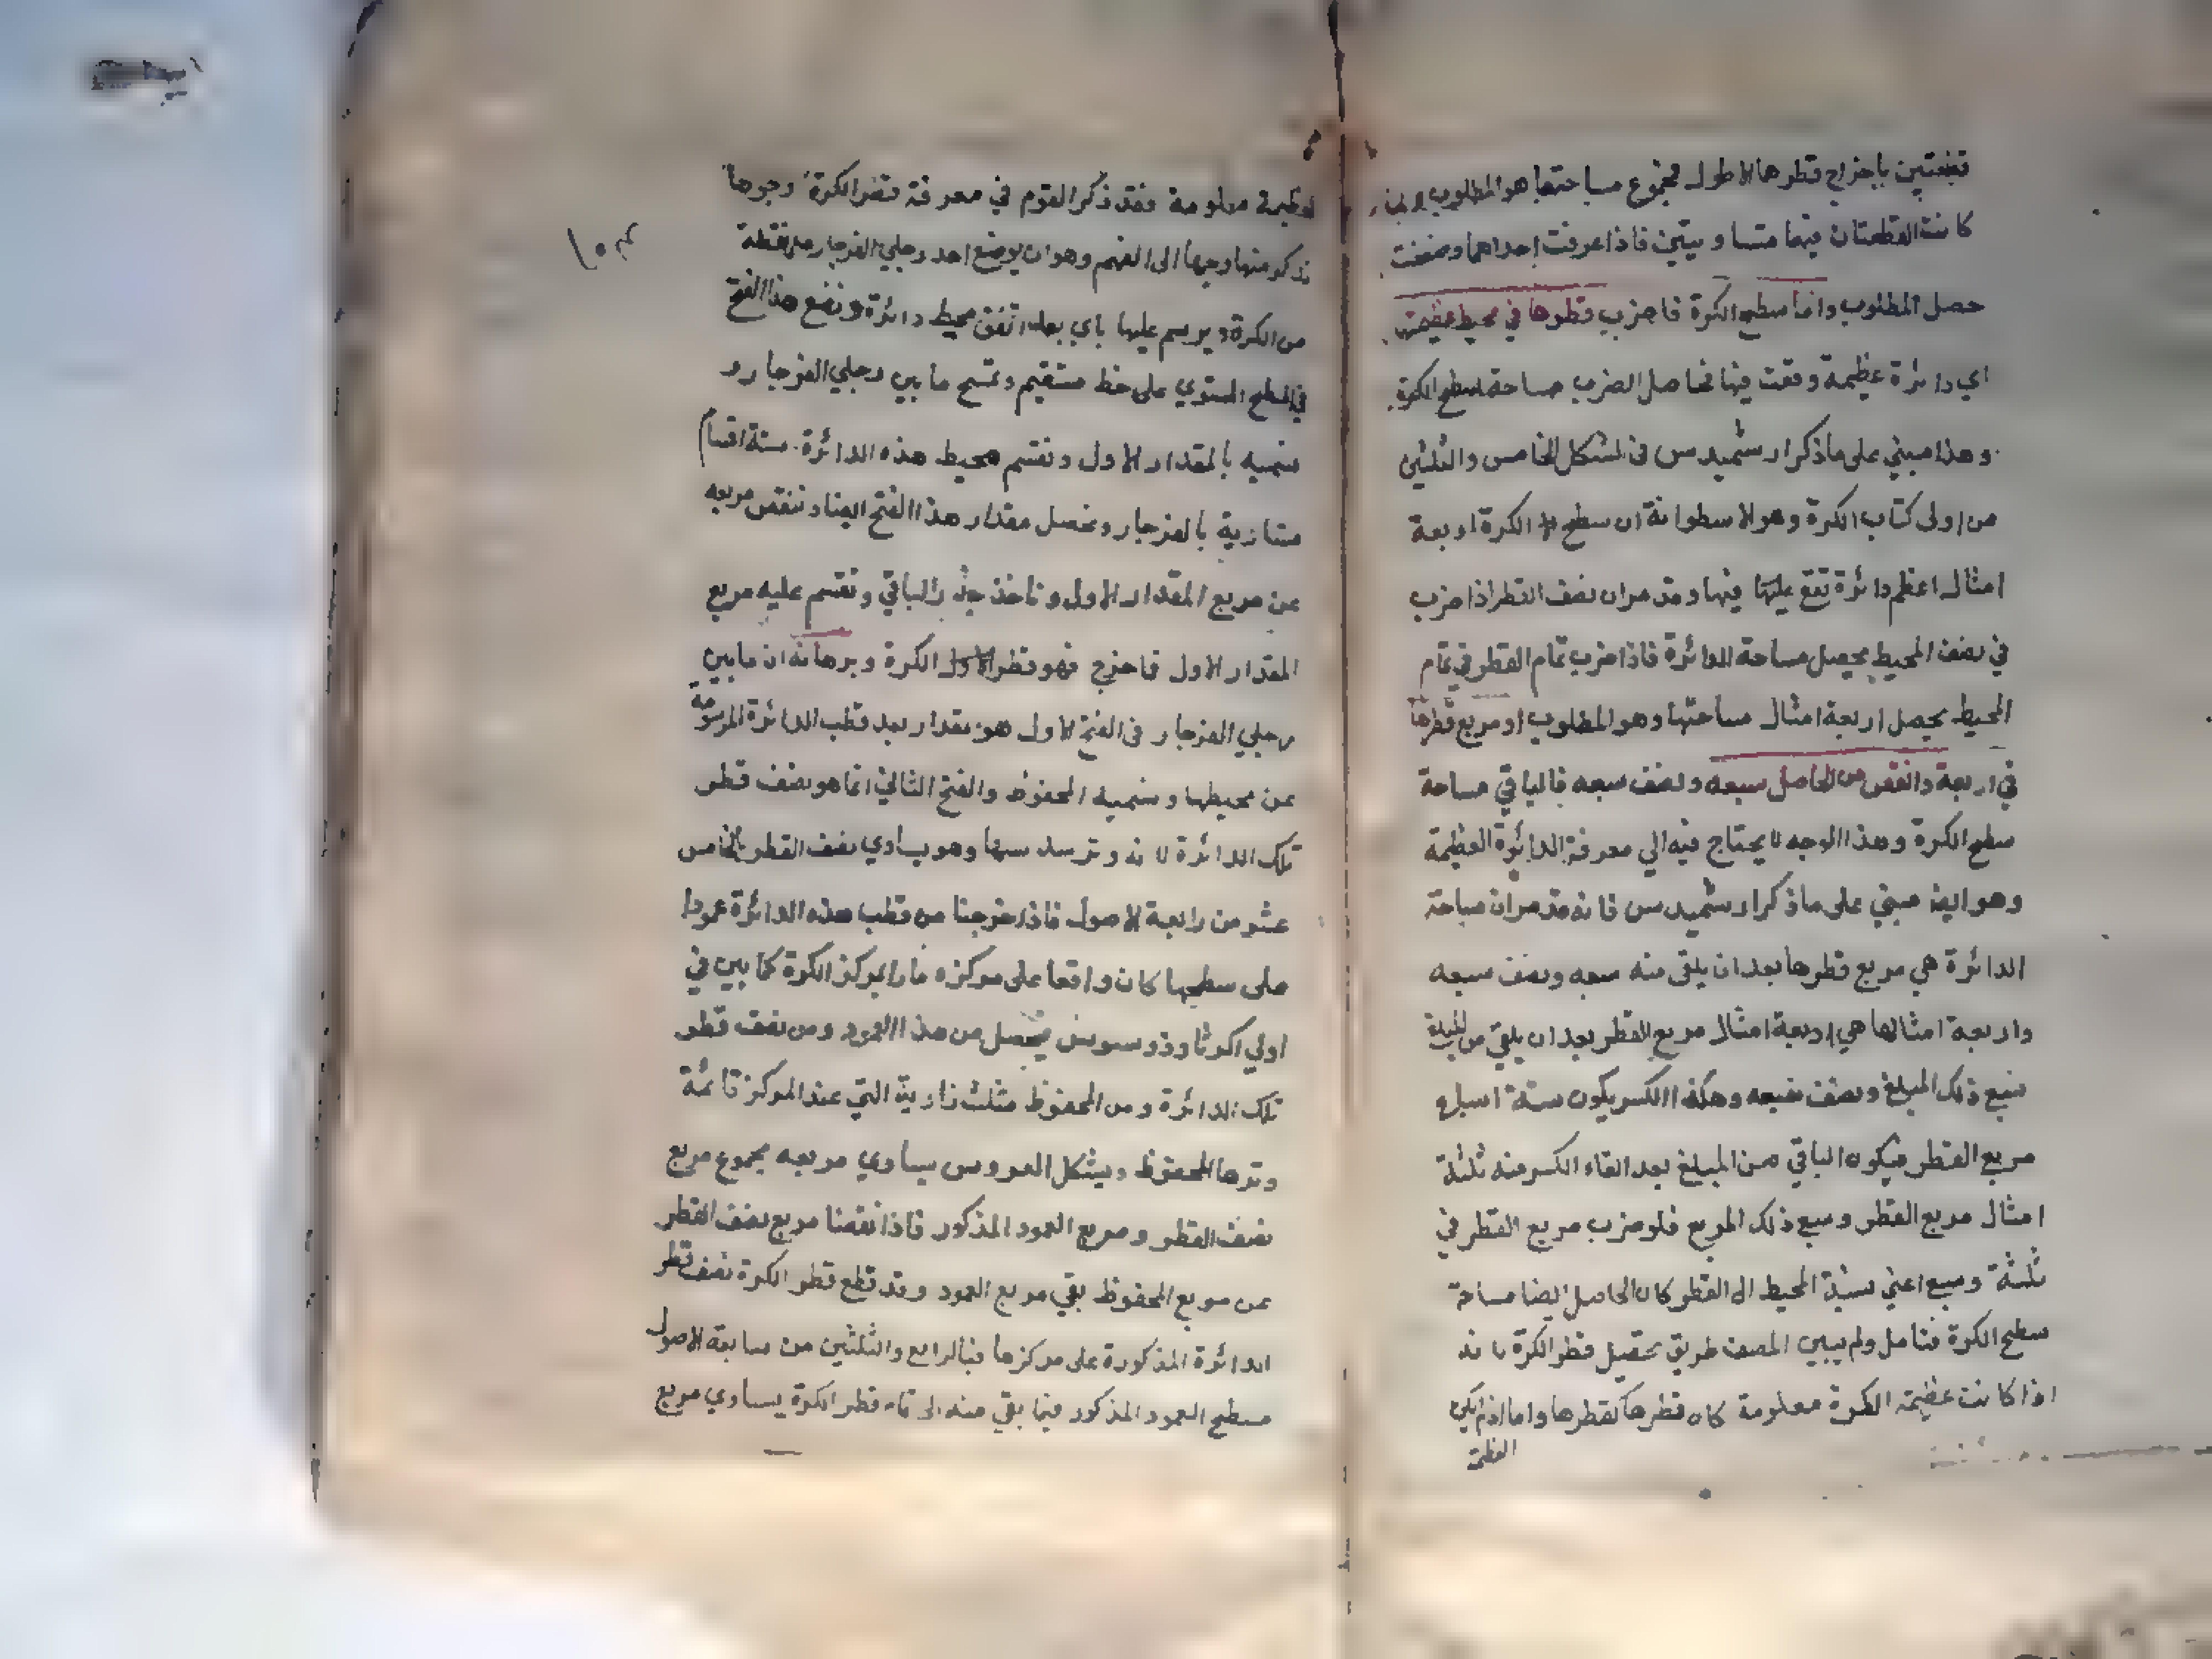 قطعتين باخراج قطرها الاطول فمجموع مساحتهما هو المطلوب
كانت القطعتان فيها متساويتين فاذا عرفت احداهما وضعفت
حصل المطلوب واما سطح الكرة فاضرب قطرها في محيط عظيمتها
اي دائرة عظيمة وقعت فيها فحاصل الضرب مساحة سطح الكرة
وهذا مبني على ما ذكر ارشميدس في الشكل الخامس والثلثين
من اولى كتاب الكرة وهو الاسطوانة ان سطح الكرة اربعة
امثال اعظم دائرة تقع عليها فيها وقد مر ان نصف القطر اذا ضرب
في نصف المحيط يحصل مساحة الدائرة فاذا ضرب تمام القطر في تمام
المحيط يحصل اربعة امثال مساحتها وهو المطلوب او مربع قطرها
في اربعة وانقص من الحاصل سبعه ونصف سبعه فالباقي مساحة
سطح الكرة وهذا الوجه لا يحتاج فيه الي معرفة الدائرة العظيمة
وهو ايضا مبني على ما ذكر ارشميدس فانه قد مر ان مساحة
الدائرة هي مربع قطرها بعد ان يلقى منه سبعه ونصف سبعه
واربعة امثالها هي اربعة امثال مربع القطر بعد ان يلقى من المبلغ
سبع ذلك المبلغ ونصف سبعه وهكذا الكسر يكون ستة اسباع
مربع القطر فيكون الباقي من المبلغ بعد القاء الكسر منه ثلثة
امثال مربع القطر وسبع ذلك المربع فلو ضرب مربع القطر في
ثلثة وسبع اعني نسبة المحيط الى القطر كان الحاصل ايضا مساحة
سطح الكرة فتامل ولم يبين المصنف طريق تحصيل قطر الكرة لانه
اذا كانت عظيمة الكرة معلومة كان قطرها كقطرها واما اذا لم يكن
العظيمة
العظيمة معلومة فقد ذكر القوم في معرفة قطر الكرة وجوها
نذكر منها وجها الى الفهم وهو ان يوضع احد رجلي الفرجار على نقطة
من الكرة ويرسم عليها باي بعد اتفق محيط دائرة ونضع هذا الفتح
في السطح المستوي على خط مستقيم ونمسح ما بين رجلي الفرجار و
نسميه بالمقدار الاول ونقسم محيط هذه الدائرة ستة اقساما
متساوية بالفرجار ونحصل مقدار هذا الفتح ايضا وننقص مربعه
من مربع المقدار الاول وناخذ جذر الباقي ونقسم عليه مربع
المقدار الاول فما خرج فهو قطر الكرة وبرهانه ان ما بين
رجلي الفرجار في الفتح الاول هو مقدار بعد قطب الدائرة المرسومة
عن محيطها ونسميه المحفوظ والفتح الثاني انما هو نصف قطر
تلك الدائرة لانه وتر سدسها وهو يساوي نصف القطر بالخامس
عشر من رابعة الاصول فاذا اخرجنا من قطب هذه الدائرة عمودا
على سطحها كان واقعا على مركزه مارا بمركز الكرة كما بين في
اولي اكر ثاوذوسيوس فيحصل من هذا العمود ومن نصف قطر
تلك الدائرة ومن المحفوظ مثلث زاويته التي عند المركز قائمة
وترها المحفوظ وبشكل العروس يساوي مربعه مجموع مربع
نصف القطر ومربع العمود المذكور فاذا نقصنا مربع نصف القطر
من مربع المحفوظ بقي مربع العمود وقد قطع قطر الكرة نصف قطر
الدائرة المذكورة على مركزها فبالرابع والثلثين من سابعة الاصول
مسطح العمود المذكور فيما بقي منه الى تمام قطر الكرة يساوي مربع